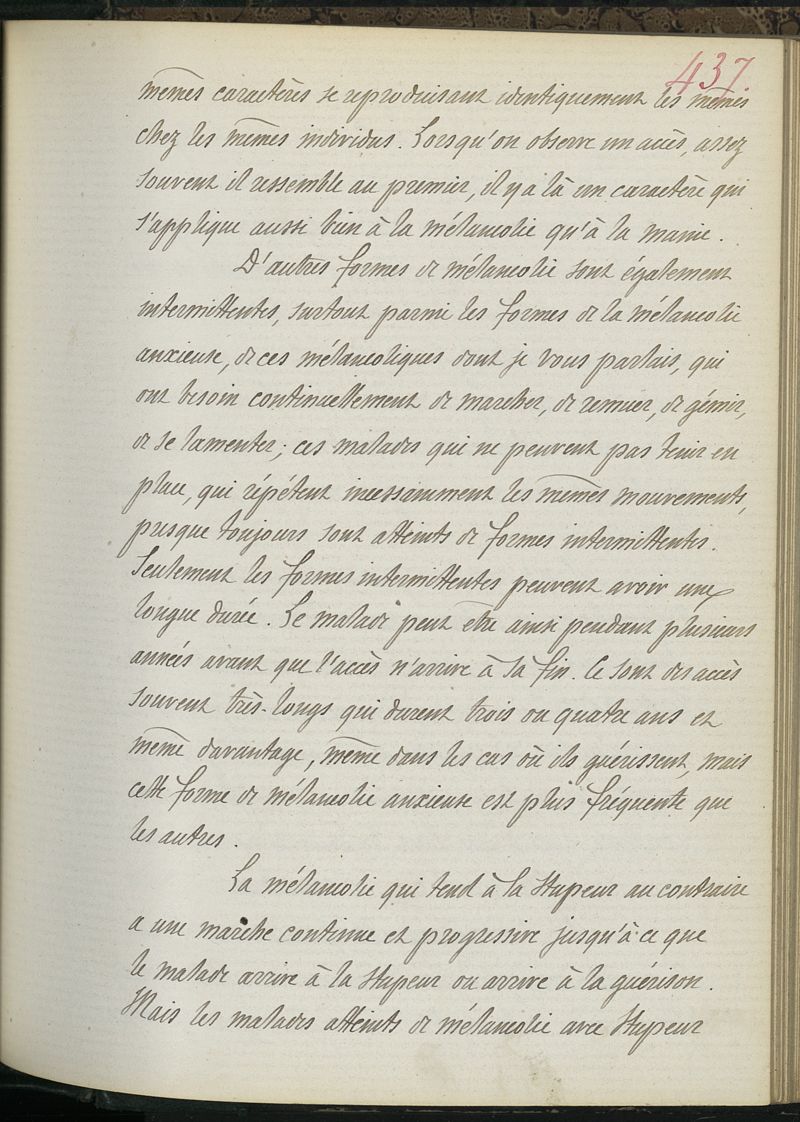 437
mêmes caractères se reproduisant identiquement les mêmes
chez les mêmes individus. Lorsqu'on observe un accès, assez
souvent il ressemble au premier, il y a là un caractère qui
s'applique aussi bien à la mélancolie qu'à la manie.
D'autres formes de mélancolie sont également
intermittentes, surtout parmi les formes de la mélancolie
anxieuse, de ces mélancoliques dont je vous parlais, qui
ont besoin continuellement de marcher, de remuer, de gémir,
de se lamenter; ces malades qui ne peuvent pas tenir en
place, qui répètent incessamment les mêmes mouvements,
presque toujours sont atteints de formes intermittentes.
Seulement les formes intermittentes peuvent avoir une
longue durée. Le malade peut être ainsi pendant plusieurs
années avant que l'accès n'arrive à sa fin. Ce sont des accès
souvent très-longs qui durent trois ou quatre ans et
même davantage, même dans les cas où ils guérissent, mais
cette forme de mélancolie anxieuse est plus fréquente que
les autres.
La mélancolie qui tend à la stupeur au contraire
a une marche continue et progressive jusqu'à ce que
le malade arrive à la stupeur ou arrive à la guérison.
Mais les malades atteints de mélancolie avec stupeur